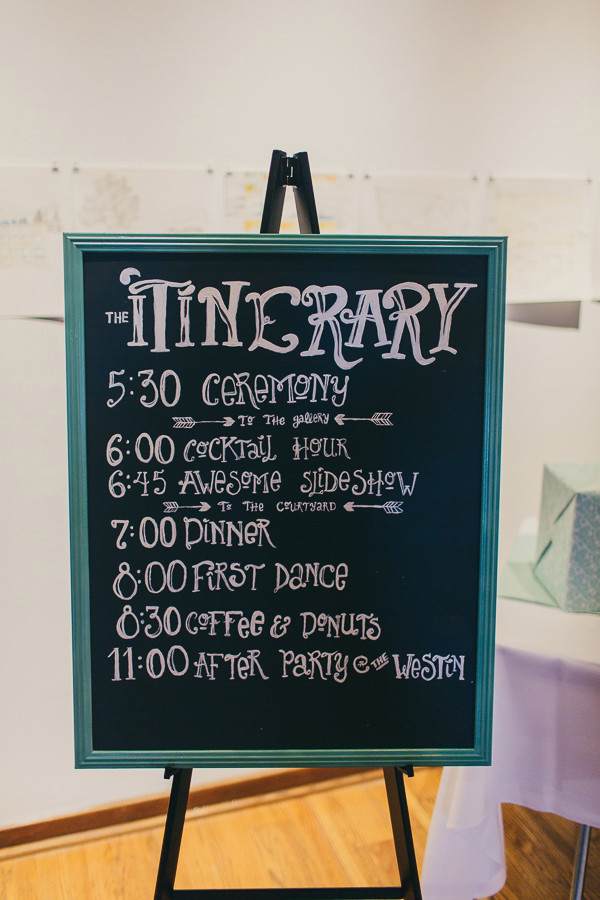 THE ITINERARY
5:30 CEREMONY
To THE gallery
6:00 COCKTAIL HOUR
6:45 AWESOME SLIDESHOW
To THE COURTYARD
7:00 DINNER
8:00 FIRST DANCE
8:30 COFFEE & DONUTS
11:00 AFTER PARTY @ THE WESTIN